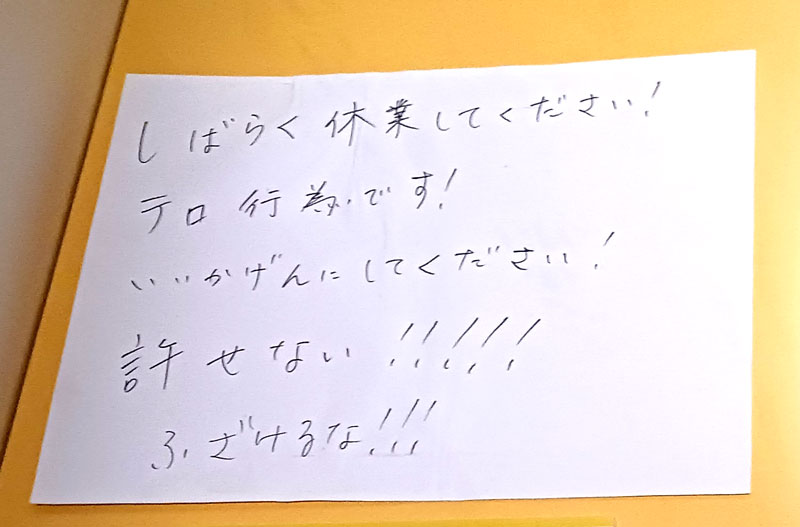 しばらく休業してください!
テロ行為です!
いいかげんにしてください!
許せない!!!!!
ふざけるな!!!